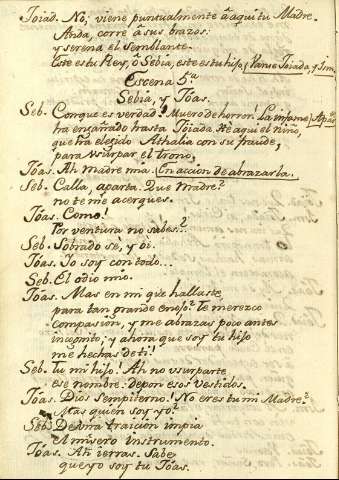 Joiad. No; viene puntualmente â aqui tu Madre.
Anda, corre â sus brazos:
y serena el semblante.
Este es tu Rey, ô Sebia, este es tu hijo; Vanse Joiada, y Ism.
Escena 5.ª
Sebia, y Jôas.
Seb. Conque es verdad! Muero de horror! La infame Apar.
ha engañado hasta Joiada. He aqui el niño,
que ha elejido Athalia con su fraude,
para usurpar el trono,
Jôas. Ah Madre mia. En accion de abrazarla.
Seb. Calla, aparta. Que Madre?
no te me acerques.
Jôas. Como!
Por ventura no sabes?
Seb. Sobrado se, y oi.
Jôas. Yo soy con todo...
Seb. El odio mio.
Jôas. Mas en mi que hallaste,
para tan grande enojo? Te merezco
compasiôn, y me abrazas poco antes
incognito; y ahora que soy tu hijo
me hechas de ti!
Seb. Tu mi hijo! Ah no usurparte
ese nombre: depon esos vestidos.
Jôas. Dios sempiterno! No eres tu mi Madre?
Mas quien soy yo?
Seb. De una traiciôn impia
el misero instrumento.
Jôas. Ah ierras. Sabe
que yo soy tu Jôas.